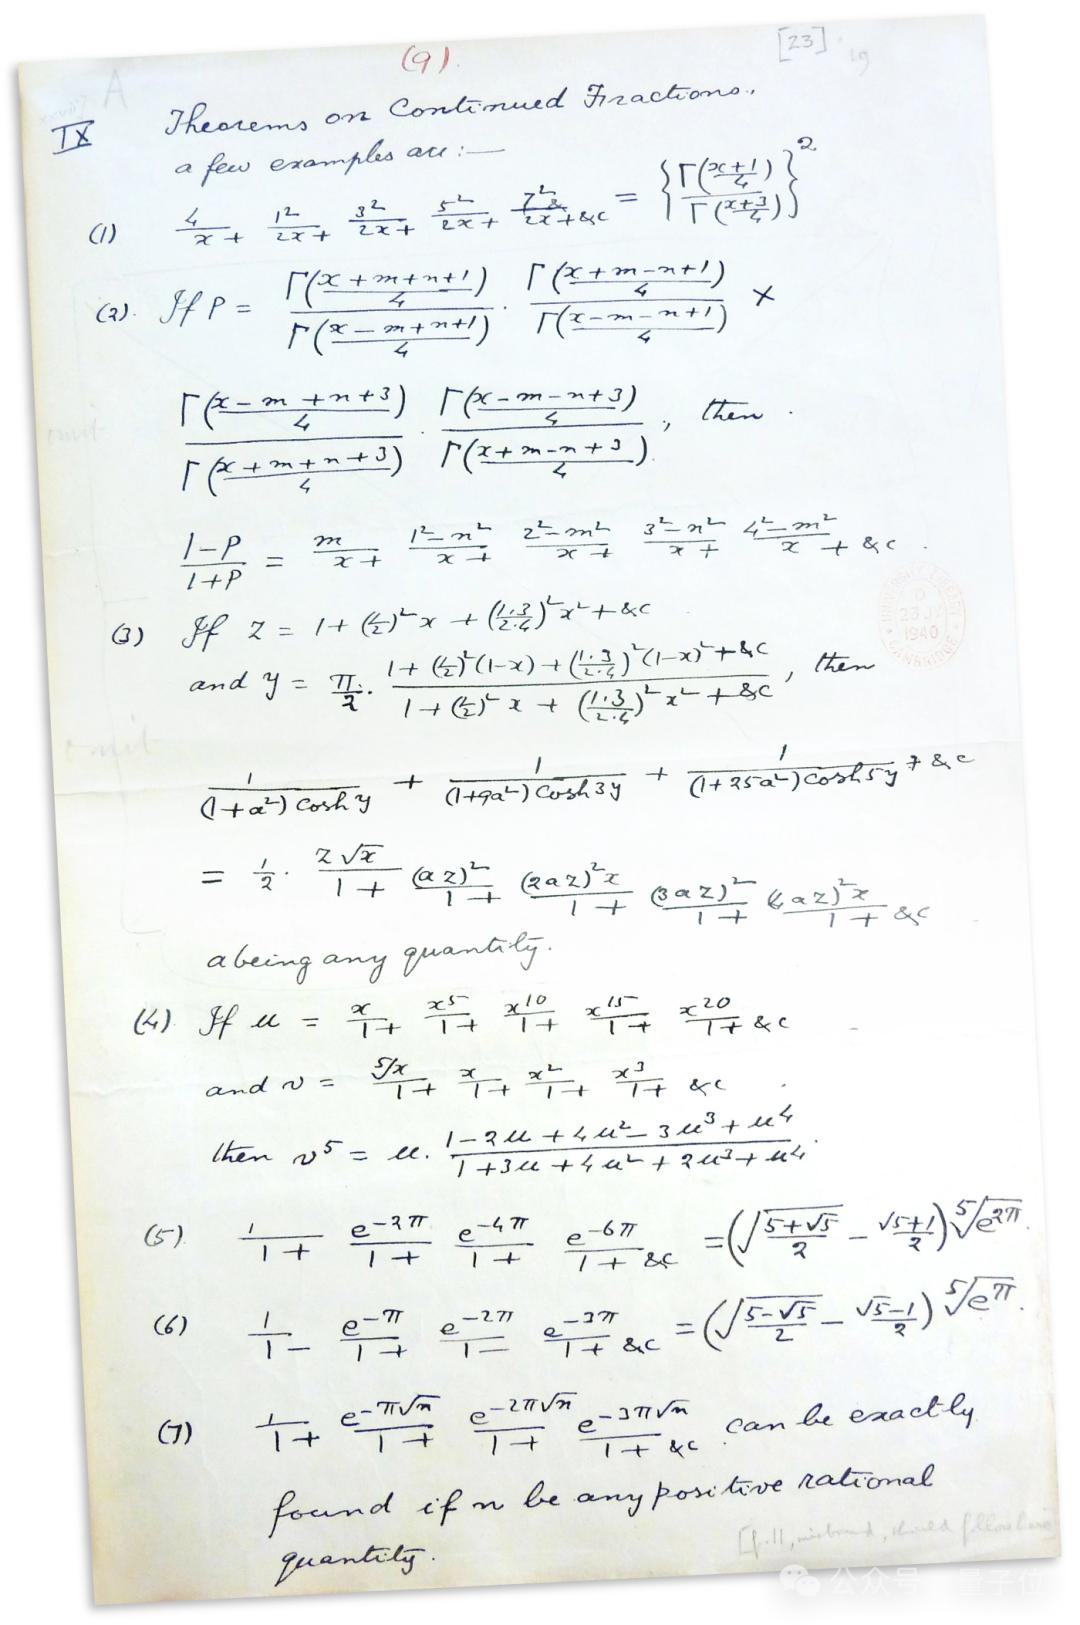 (9).
[23]
IX Theorems on Continued Fractions.
a few examples are :—
(1) 4/x + 1²/2x + 3²/2x + 5²/2x + 7²/2x + &c = {Γ((x+1)/4) / Γ((x+3)/4)}²
(2). If P = Γ((x+m+n+1)/4) / Γ((x-m+n+1)/4) · Γ((x+m-n+1)/4) / Γ((x-m-n+1)/4) ×
Γ((x-m+n+3)/4) / Γ((x+m+n+3)/4) · Γ((x-m-n+3)/4) / Γ((x+m-n+3)/4), then
omit
(1-P)/(1+P) = m/x + (1²-n²)/x + (2²-m²)/x + (3²-n²)/x + (4²-m²)/x + &c.
(3) If z = 1 + (1/2)²x + (1·3/2·4)²x² + &c
and y = π/2 · (1 + (1/2)²(1-x) + (1·3/2·4)²(1-x)² + &c) / (1 + (1/2)²x + (1·3/2·4)²x² + &c), then
omit
1/((1+a²) cosh y) + 1/((1+9a²) cosh 3y) + 1/((1+25a²) cosh 5y) + &c
= 1/2 · z√x/1 + (az)²/1 + (2az)²x/1 + (3az)²/1 + (4az)²x/1 + &c
a being any quantity.
(4). If u = x/1 + x⁵/1 + x¹⁰/1 + x¹⁵/1 + x²⁰/1 + &c
and v = ⁵√x/1 + x/1 + x²/1 + x³/1 + &c
then v⁵ = u · (1-2u+4u²-3u³+u⁴)/(1+3u+4u²+2u³+u⁴).
(5). 1/1 + e^(-2π)/1 + e^(-4π)/1 + e^(-6π)/1 + &c = (√((5+√5)/2) - (√5+1)/2) ⁵√(e^(2π)).
(6) 1/1 - e^(-π)/1 + e^(-2π)/1 - e^(-3π)/1 + &c = (√((5-√5)/2) - (√5-1)/2) ⁵√(e^π).
(7) 1/1 + e^(-π√n)/1 + e^(-2π√n)/1 + e^(-3π√n)/1 + &c can be exactly
found if n be any positive rational
quantity.
[f.11, misbound, should follow here]
UNIVERSITY LIBRARY
23 JY
1940
CAMBRIDGE
公众号 量子位